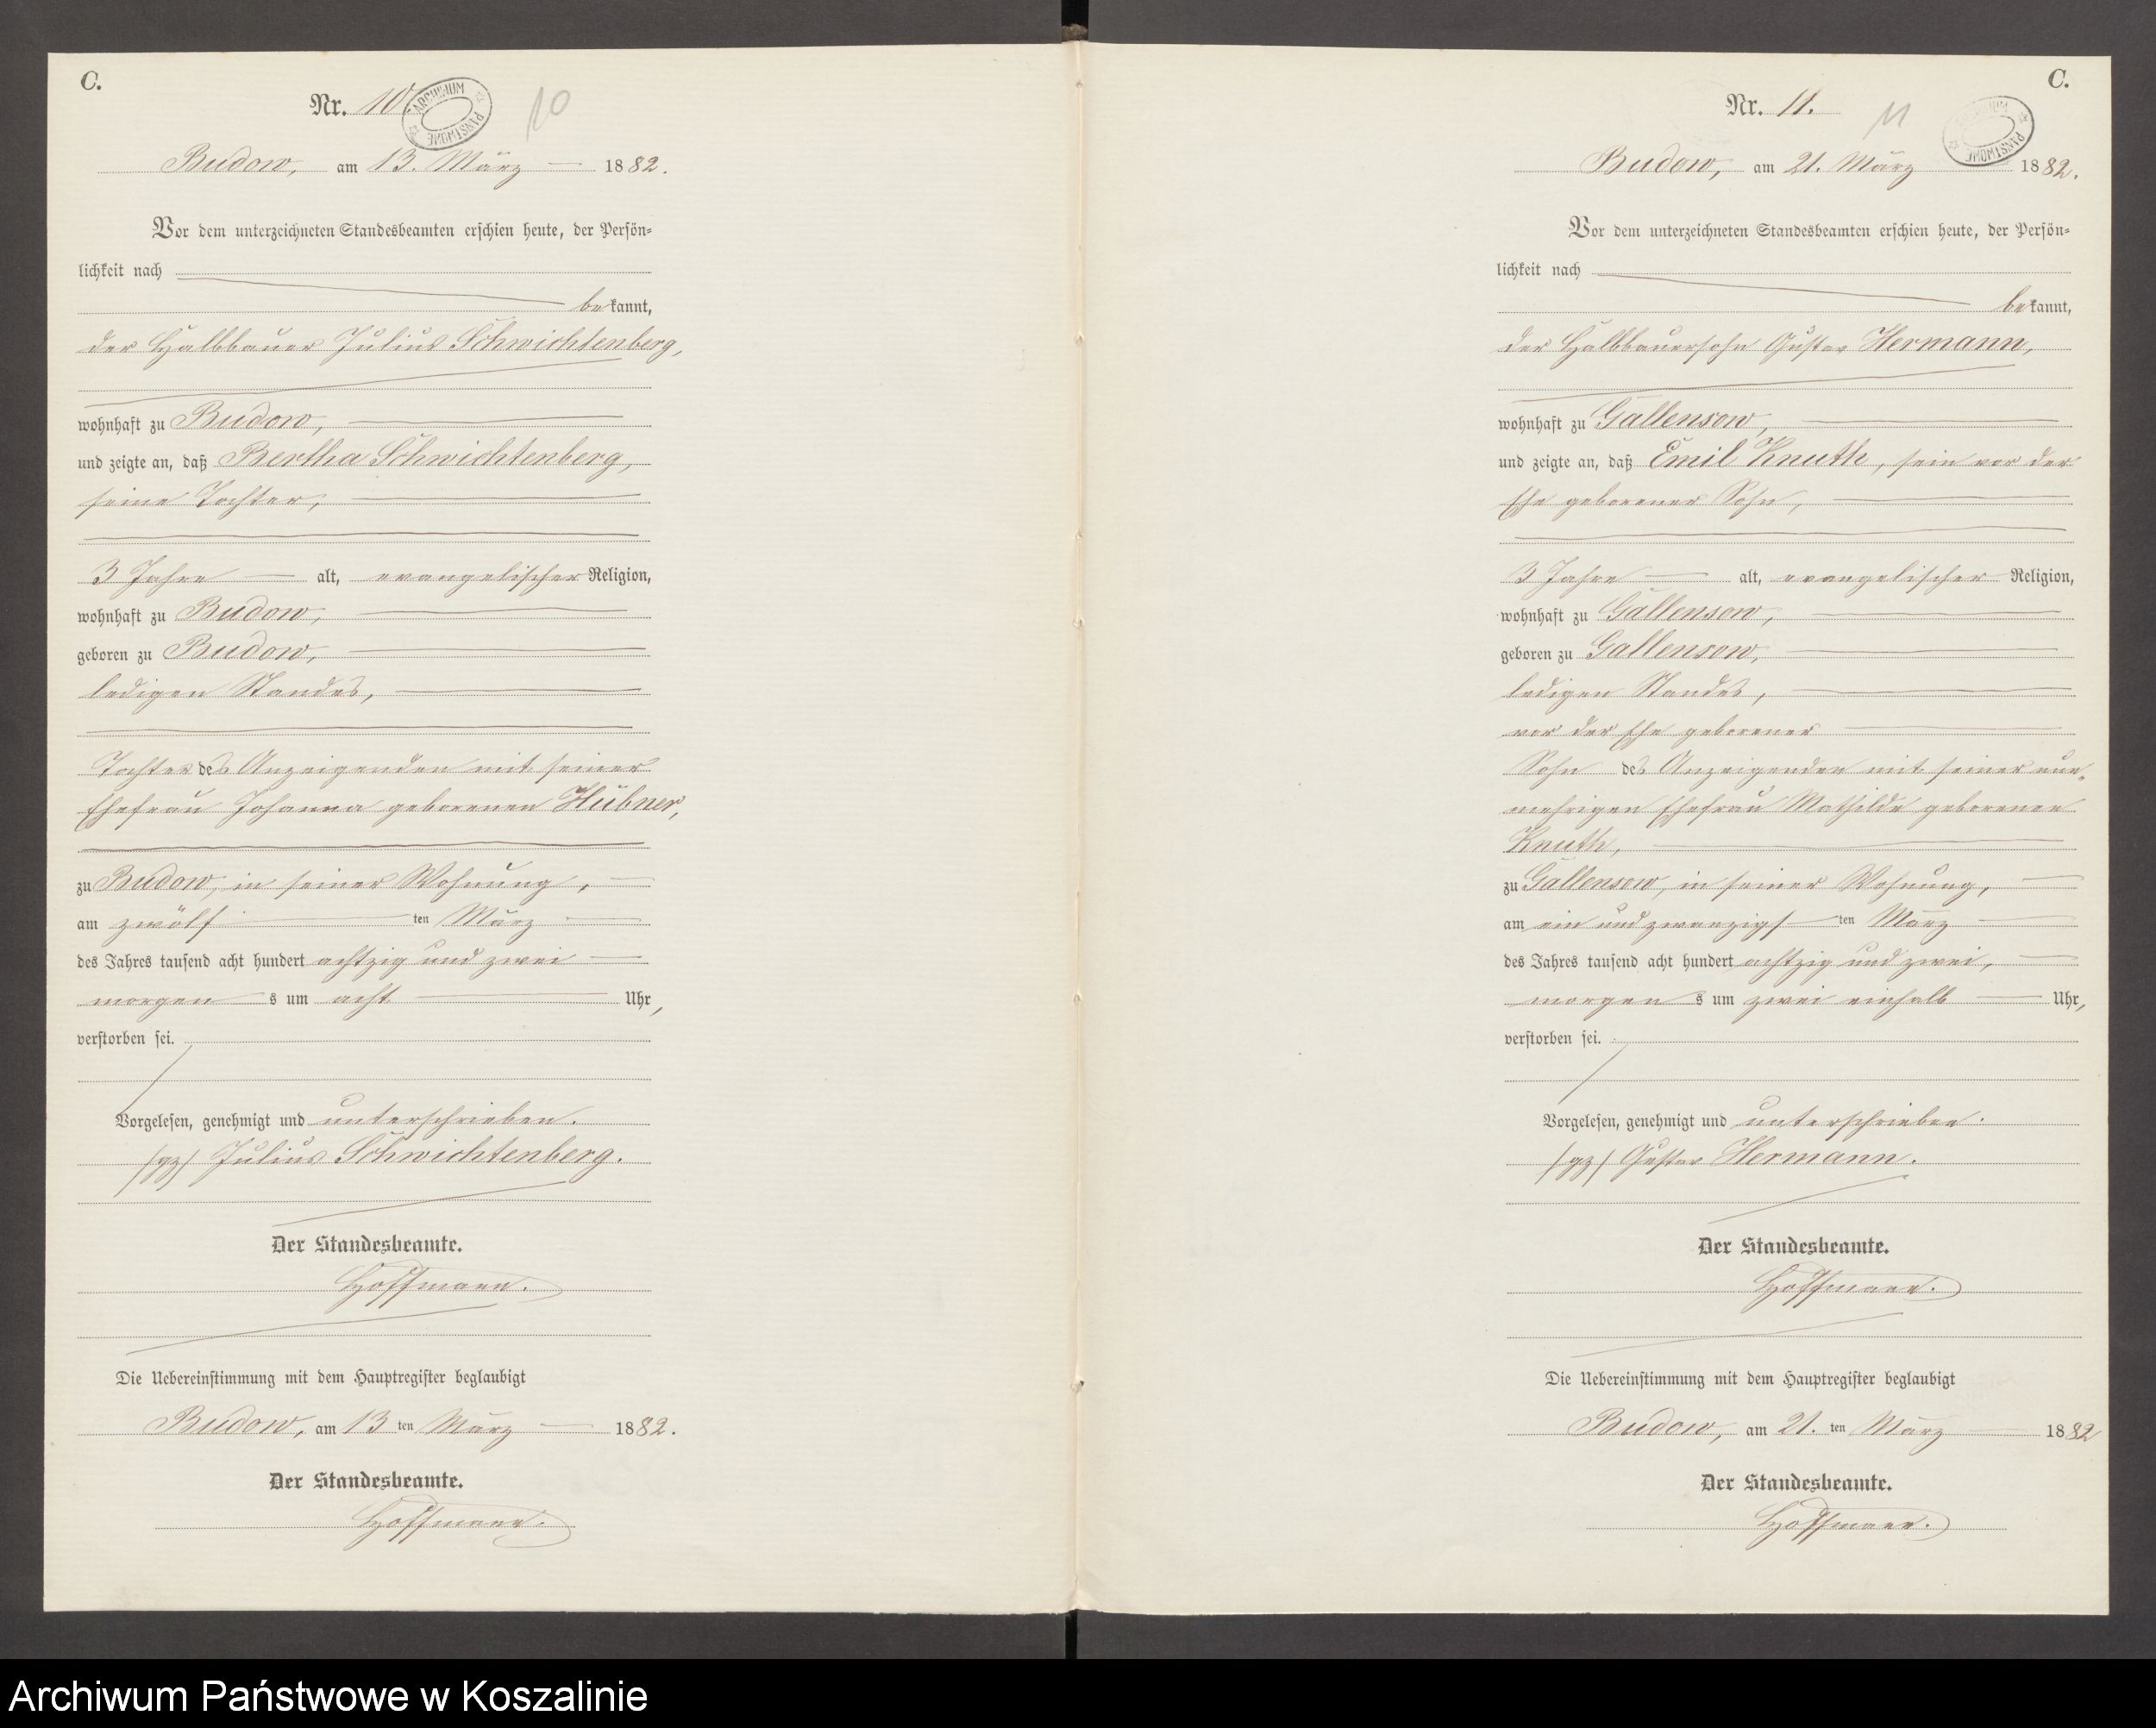 C.
Nr. 10.
ARCHIWUM PAŃSTWOWE
10
Budow, am 13. März 1882.
Vor dem unterzeichneten Standesbeamten erschien heute, der Persön=
lichkeit nach
bekannt,
der Halbbauer Julius Schwichtenberg,
wohnhaft zu Budow,
und zeigte an, daß Bertha Schwichtenberg,
seine Tochter,
3 Jahre alt, evangelischer Religion,
wohnhaft zu Budow,
geboren zu Budow,
ledigen Standes,
Tochter des Anzeigenden mit seiner
Ehefrau Johanna geborenen Hübner,
zu Budow, in seiner Wohnung,
am zwölf ten März
des Jahres tausend acht hundert achtzig und zwei
morgens um acht Uhr,
verstorben sei.
Vorgelesen, genehmigt und unterschrieben.
/gz/ Julius Schwichtenberg.
Der Standesbeamte.
Hoffmann.
Die Uebereinstimmung mit dem Hauptregister beglaubigt
Budow, am 13 ten März 1882.
Der Standesbeamte.
Hoffmann.
C.
Nr. 11.
11
PAŃSTWOWE
Budow, am 21. März 1882.
Vor dem unterzeichneten Standesbeamten erschien heute, der Persön=
lichkeit nach
bekannt,
der Halbbauersohn Gustav Hermann,
wohnhaft zu Gallensow,
und zeigte an, daß Emil Knuth, sein vor der
Ehe geborener Sohn,
3 Jahre alt, evangelischer Religion,
wohnhaft zu Gallensow,
geboren zu Gallensow,
ledigen Standes,
vor der Ehe geborener
Sohn des Anzeigenden mit seiner nun=
mehrigen Ehefrau Mathilde geborenen
Knuth,
zu Gallensow, in seiner Wohnung,
am ein und zwanzigs ten März
des Jahres tausend acht hundert achtzig und zwei,
morgens um zwei einhalb Uhr,
verstorben sei.
Vorgelesen, genehmigt und unterschrieben.
/gz/ Gustav Hermann.
Der Standesbeamte.
Hoffmann.
Die Uebereinstimmung mit dem Hauptregister beglaubigt
Budow, am 21. ten März 1882
Der Standesbeamte.
Hoffmann.
Archiwum Państwowe w Koszalinie